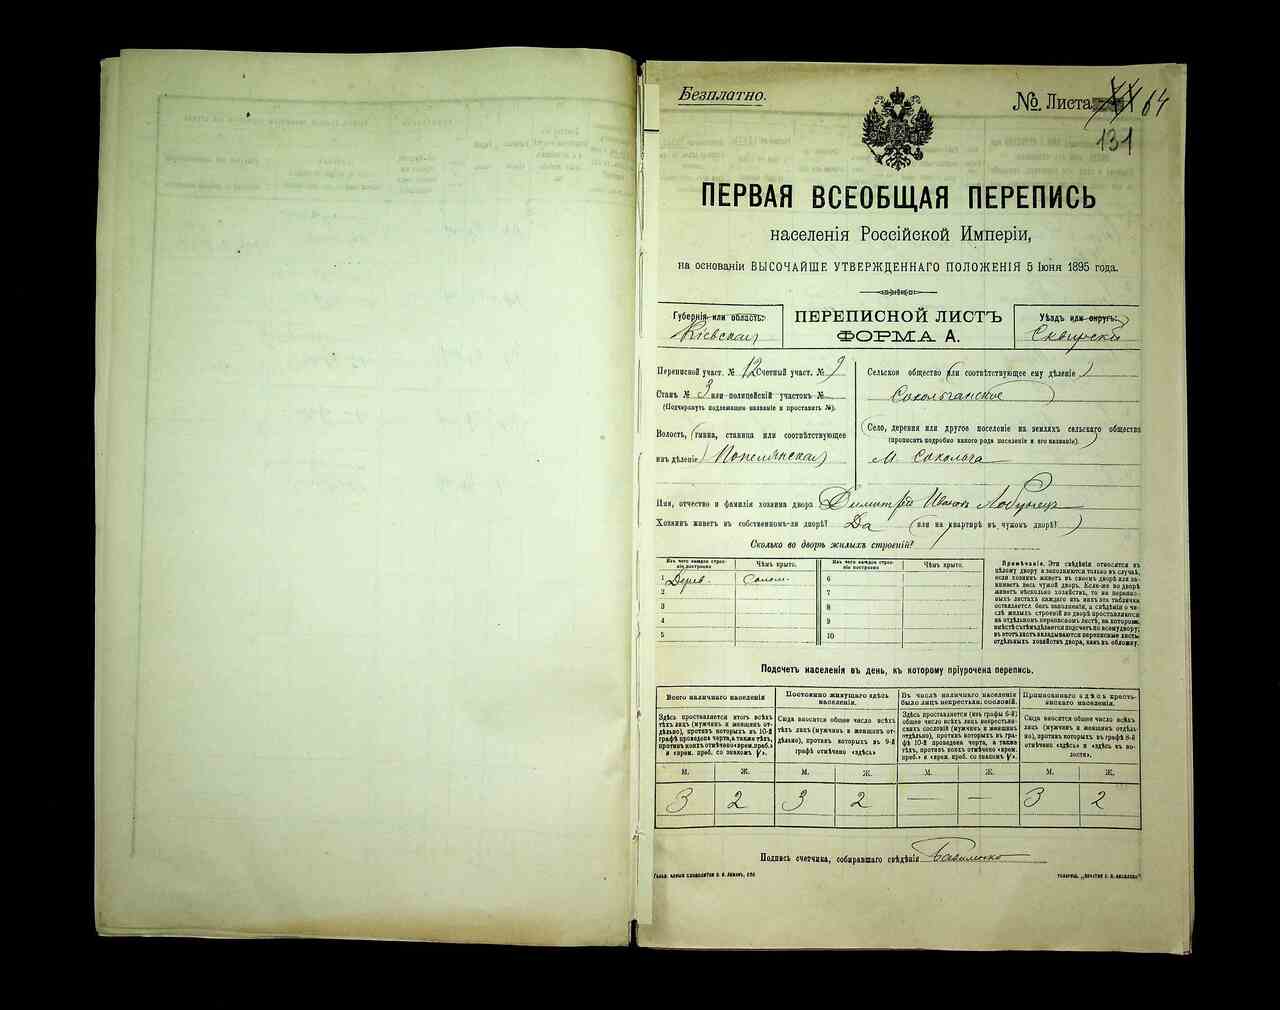 Безплатно.
№ Листа 64
131
ПЕРВАЯ ВСЕОБЩАЯ ПЕРЕПИСЬ
населенія Россійской Имперіи,
на основаніи ВЫСОЧАЙШЕ УТВЕРЖДЕННАГО ПОЛОЖЕНІЯ 5 Іюня 1895 года.
Губернія или область:
Кіевская
ПЕРЕПИСНОЙ ЛИСТЪ
ФОРМА А.
Уѣздъ или округъ:
Сквирскій
Переписной участ. № 12 Счетный участ. № 9
Станъ № 3 или полицейскій участокъ №
(Подчеркнуть подлежащее названіе и проставить №).
Волость, (гмина, станица или соотвѣтствующее
имъ дѣленіе)
Сельское общество (или соотвѣтствующее ему дѣленіе)
Село, деревня или другое поселеніе на земляхъ сельскаго общества
(прописать подробно какого рода поселеніе и его названіе).
М.
Имя, отчество и фамилія хозяина двора Димитрій Ивановъ
Хозяинъ живетъ въ собственномъ-ли дворѣ? Да (или на квартирѣ въ чужомъ дворѣ?)
Сколько во дворѣ жилыхъ строеній? 1
Изъ чего каждое строеніе построено
Чѣмъ крыто.
Изъ чего каждое строеніе построено
Чѣмъ крыто.
1 Дерев. Солом. 6
2 7
3 8
4 9
5 10
Примѣчаніе. Эти свѣдѣнія относятся къ
цѣлому двору и заполняются только въ случаѣ,
если хозяинъ живетъ въ своемъ дворѣ или занимаетъ
весь чужой дворъ. Если-же во дворѣ
живетъ нѣсколько хозяйствъ, то на переписныхъ
листахъ каждаго изъ нихъ эта табличка
оставляется безъ заполненія, а свѣдѣнія о числѣ
жилыхъ строеній во дворѣ проставляются
на отдѣльномъ переписномъ листѣ, на которомъ
вмѣстѣ съ тѣмъ дѣлается подсчетъ по всему двору;
въ этотъ листъ вкладываются переписные листы
отдѣльныхъ хозяйствъ двора, какъ въ обложку.
Подсчетъ населенія въ день, къ которому пріурочена перепись.
Всего наличнаго населенія
Постоянно живущаго здѣсь населенія.
Въ числѣ наличнаго населенія было лицъ некрестьян. сословій.
Приписаннаго здѣсь крестьянскаго населенія.
Здѣсь проставляется итогъ всѣхъ
тѣхъ лицъ (мужчинъ и женщинъ отдѣльно),
противъ которыхъ въ 10-й
графѣ проведена черта, а также тѣхъ,
противъ коихъ отмѣчено «врем. преб.»
и «врем. преб. со знакомъ V».
Сюда вносится общее число всѣхъ
тѣхъ лицъ (мужчинъ и женщинъ отдѣльно),
противъ которыхъ въ 9-й
графѣ отмѣчено «здѣсь»
Здѣсь проставляется (изъ графы 6-й)
общее число всѣхъ лицъ некрестьянскихъ
сословій (мужчинъ и женщинъ
отдѣльно), противъ которыхъ въ графѣ
10-й проведена черта, а также
тѣхъ, противъ коихъ отмѣчено «врем.
преб.» и «врем. преб. со знакомъ V».
Сюда вносится общее число всѣхъ
тѣхъ лицъ (мужчинъ и женщинъ отдѣльно),
противъ которыхъ въ графѣ 8-й
отмѣчено «здѣсь» и «здѣсь въ волости».
М. Ж. М. Ж. М. Ж. М. Ж.
3 2 3 2 — — 3 2
Подпись счетчика, собиравшаго свѣдѣнія